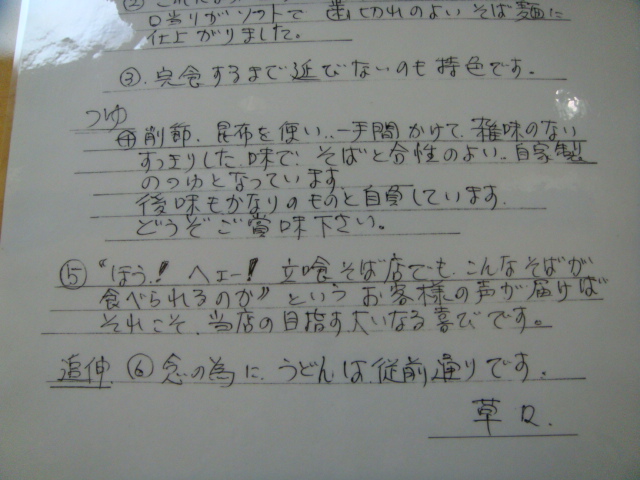 口当りがソフトで 歯切れのよい そば麺に
仕上がりました。
③. 完食するまで延びないのも特色です。
つゆ
④ 削節. 昆布を使い.. 一手間かけて. 雑味のない
すっきりした味で. そばと合性のよい.. 自家製
のつゆとなっています
後味もかなりのものと自負しています.
どうぞご賞味下さい。
⑤ "ほう! ヘェー! 立喰そば店でも. こんなそばが
食べられるのか" という お客様の声が届けば
それこそ. 当店の目指す大いなる喜びです。
追伸. ⑥ 念の為に. うどんは従前通りです.
草々.